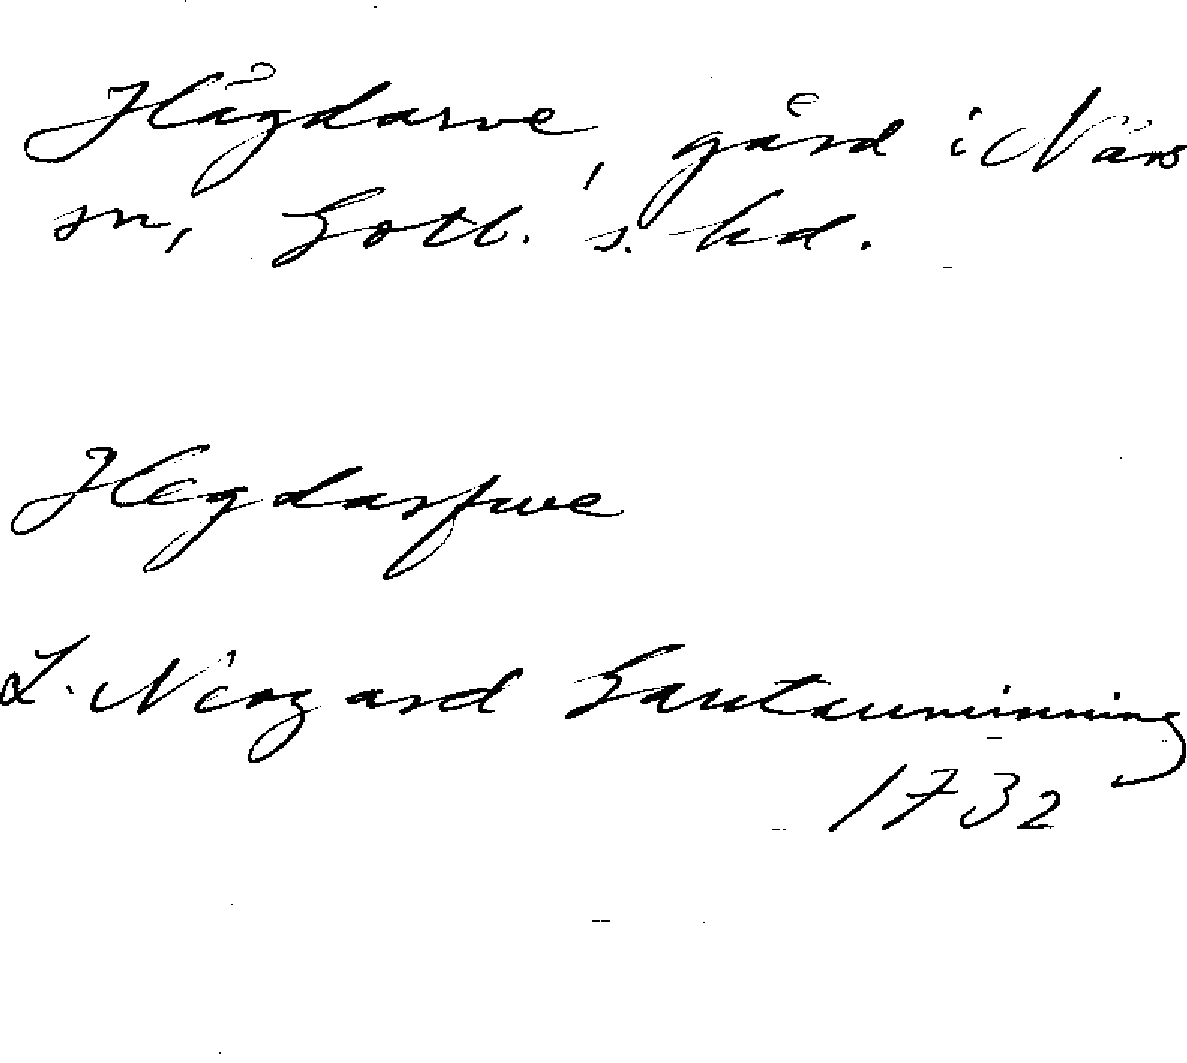 Hågdarve, gård i När
sn, Gotl. s. hd.
Hegdarfwe
L. Neogard Gautauminning
1732